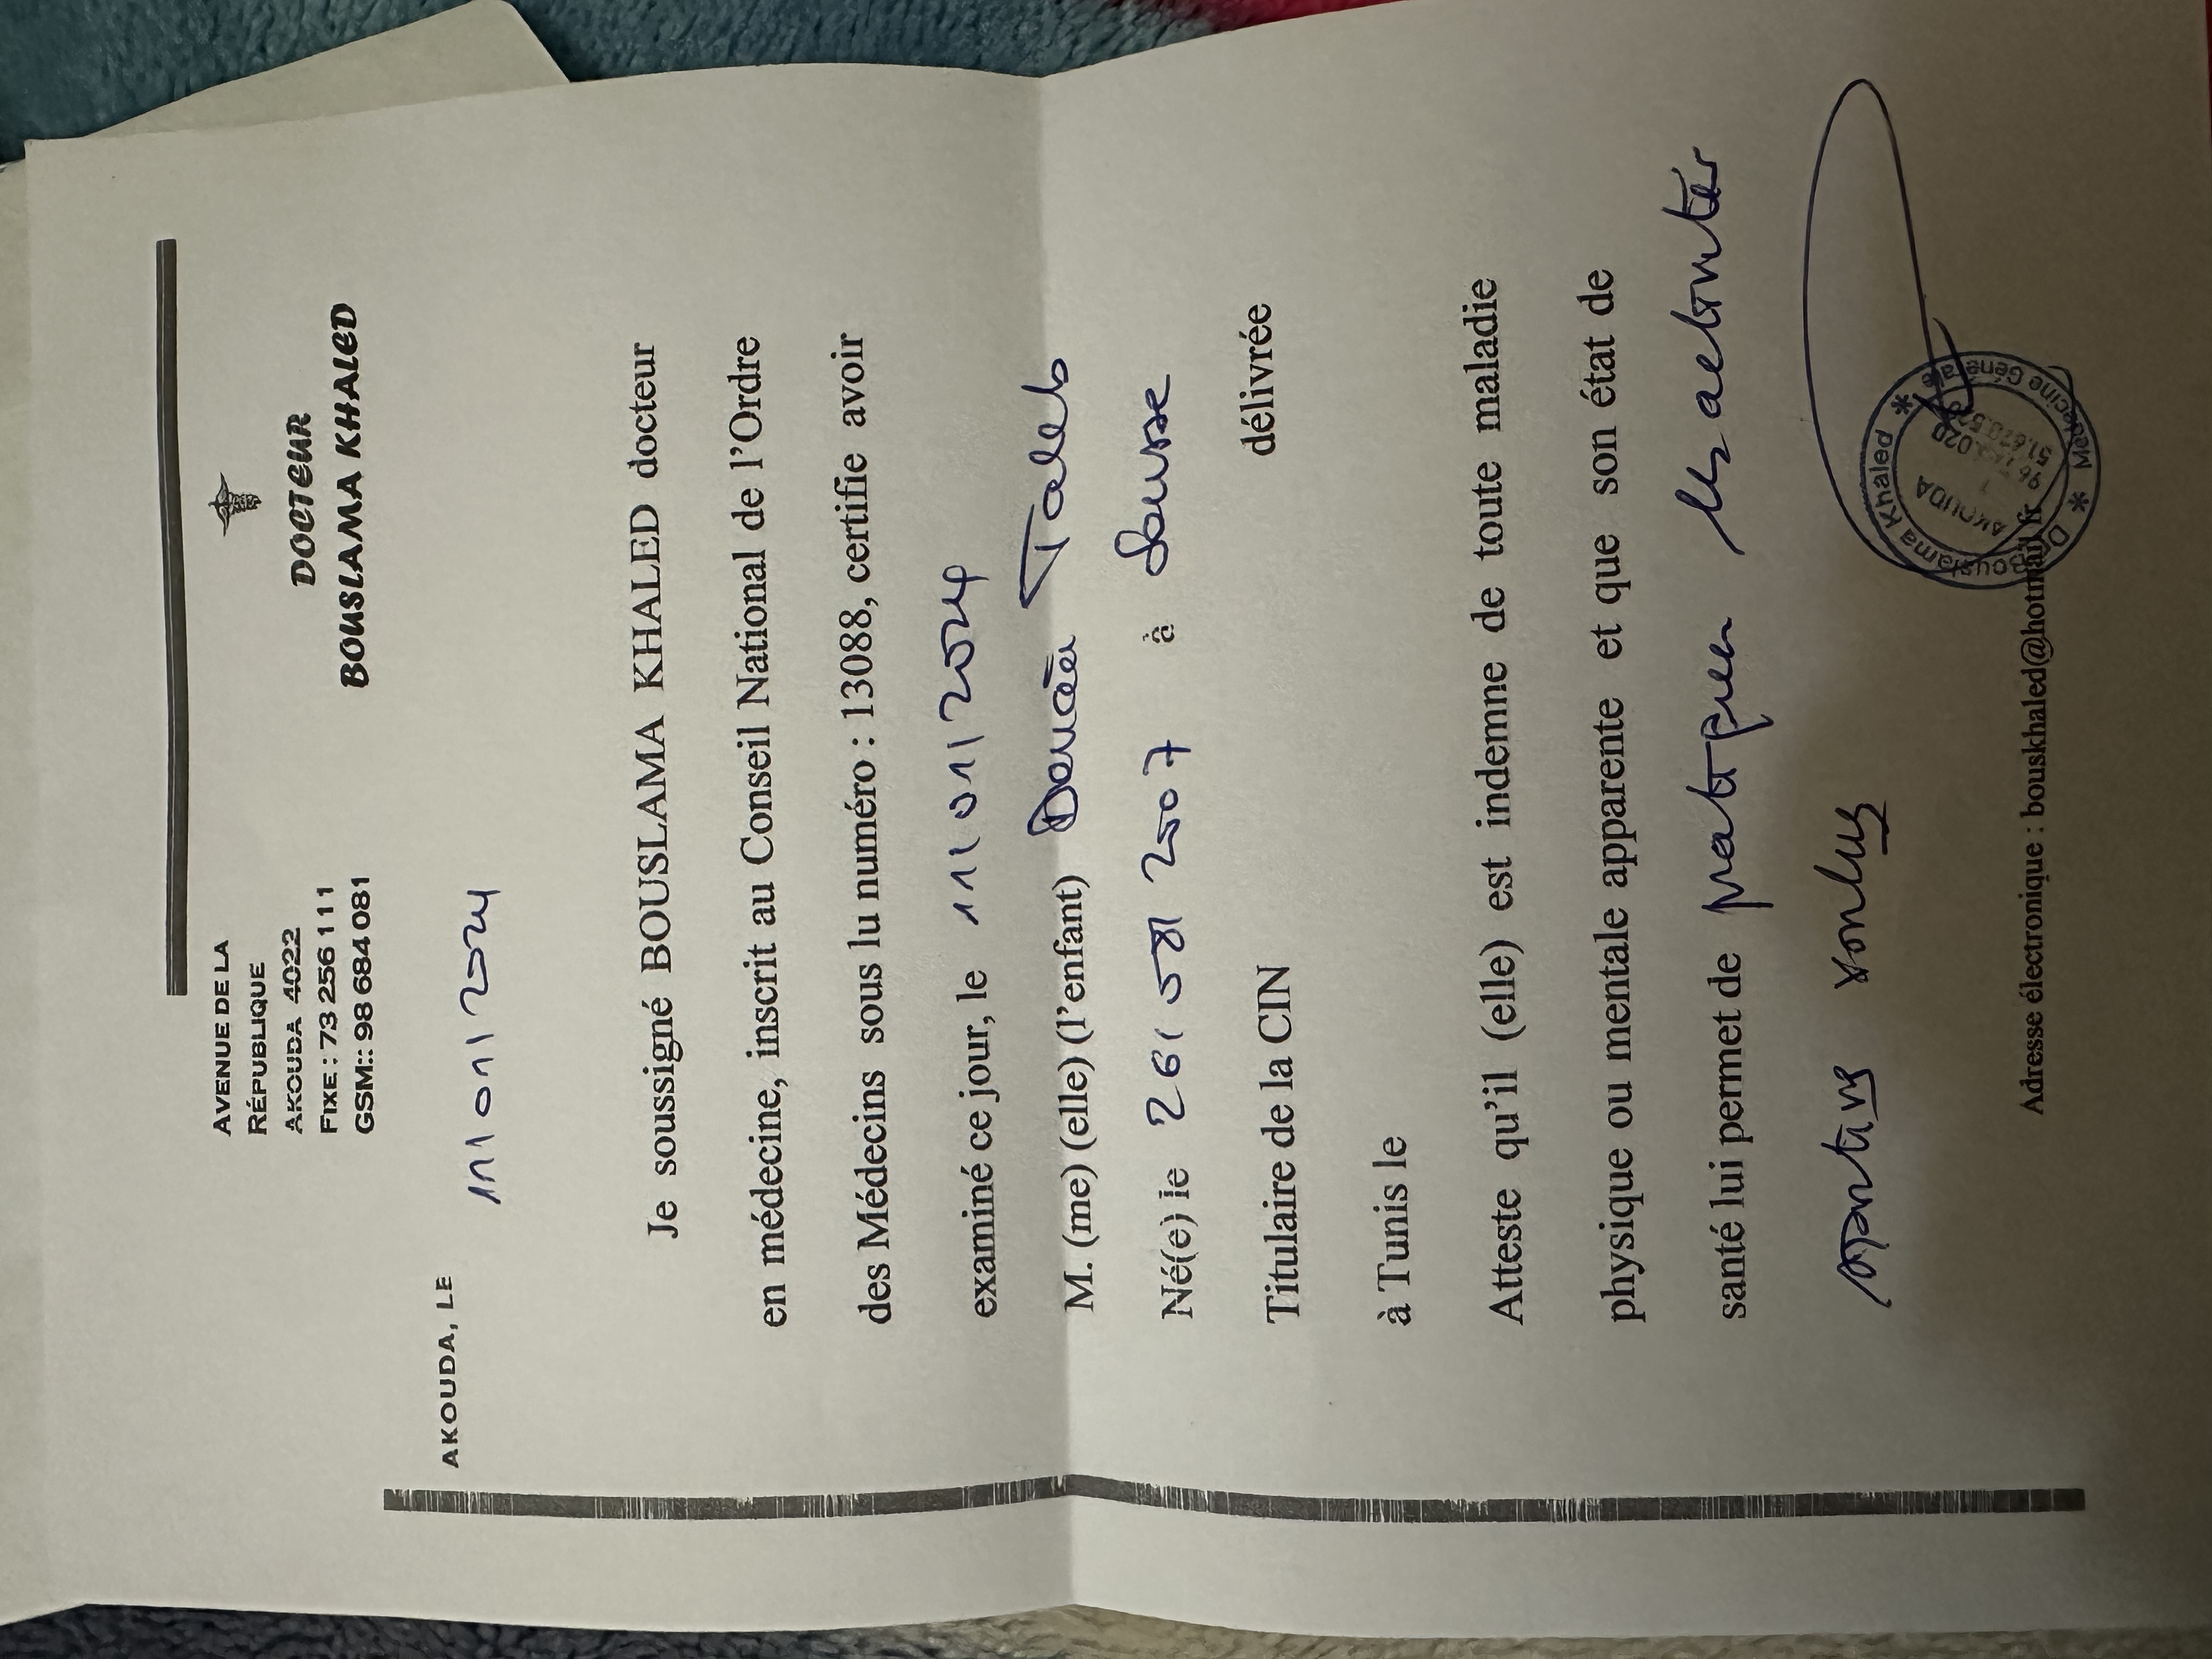 AVENUE DE LA
RÉPUBLIQUE
AKOUDA 4022
FIXE : 73 256 111
GSM:: 98 684 081
DOCTEUR
BOUSLAMA KHALED
AKOUDA, LE
11/01/2024
Je soussigné BOUSLAMA KHALED docteur
en médecine, inscrit au Conseil National de l'Ordre
des Médecins sous lu numéro : 13088, certifie avoir
examiné ce jour, le 11/01/2024
M. (me) (elle) (l'enfant) Taleb
Né(e) le 26/08/2007 à Sousse
Titulaire de la CIN délivrée
à Tunis le
Atteste qu'il (elle) est indemne de toute maladie
physique ou mentale apparente et que son état de
santé lui permet de pratiquer les activités
sportives
Dr Bouslama Khaled * Médecine Générale *
AKOUDA
Adresse électronique : bouskhaled@hotmail.fr